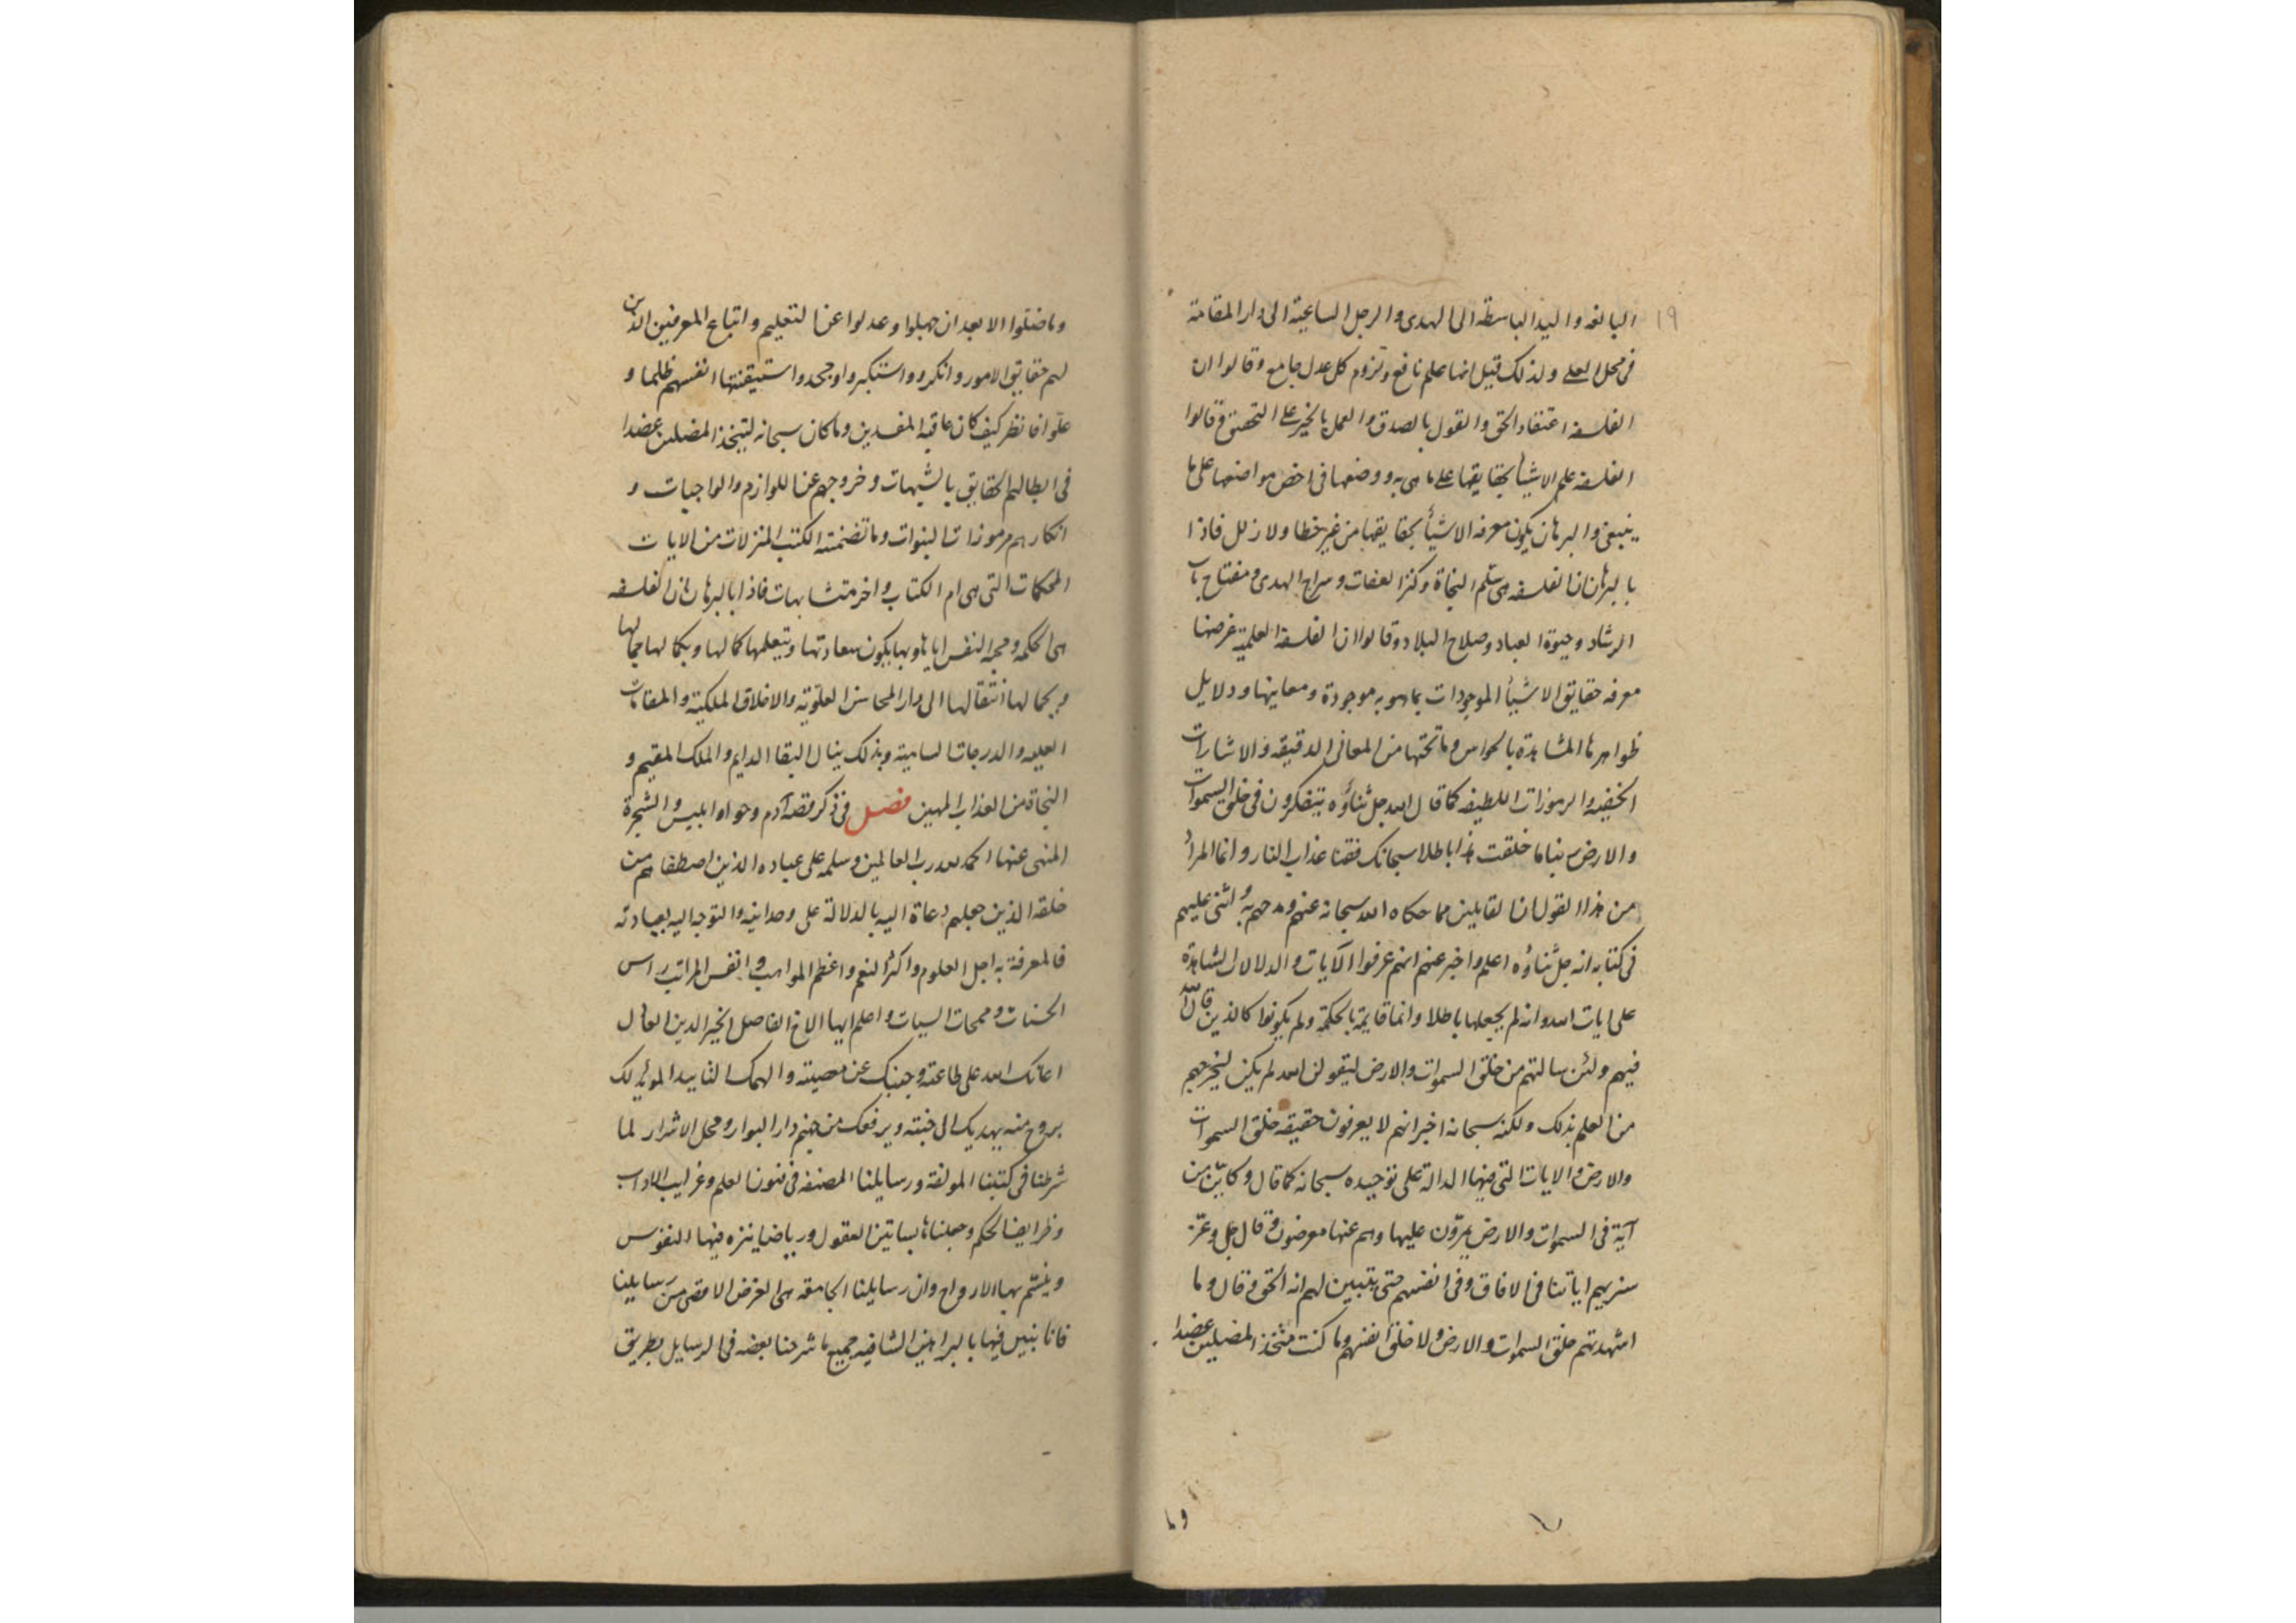 ١٩
البالغه واليد الباسطة الى الهدى والرجل الساعية الى دار المقامة
فى محل العلى ولذلك قيل انها علم نافع ولزوم كل عدل جامع وقالوا ان
الفلسفه اعتقاد الحق والقول بالصدق والعمل بالخير على التحقيق وقالوا
الفلسفه علم الاشيأ بحقايقها على ما هى به ووضعها فى اخص مواضعها على ما
ينبغى والبرهان يكون معرفه الاشيأ بحقايقها من غير خطا ولا زلل فاذا
بالبرهان ان الفلسفه هى سلم النجاة وكنز العفات وسراج الهدى ومفتاح باب
الرشاد وحيوة العباد وصلاح البلاد وقالوا ان الفلسفة العلمية غرضها
معرفه حقايق الاشيأ الموجودات بما هو به موجودة ومعاينها ودلايل
ظواهرها المشاهدة بالحواس وما تحتها من المعانى الدقيقه والاشارات
الخفيه والرموزات اللطيفه كما قال الله جل ثناؤه يتفكرون فى خلق السموات
والارض ربنا ما خلقت هذا باطلا سبحانك فقنا عذاب النار وانما المراد
من هذا القول ان القايلين مما حكاه الله سبحانه عنهم ومدحهم به واثنى عليهم
فى كتابه انه جل ثناؤه اعلم واخبر عنهم انهم عرفوا الآيات والدلالات الشاهدة
على ايات الله وانه لم يجعلها باطلا وانما قايمة بالحكمة ولم يكونوا كالذين قال الله
فيهم ولئن سالتهم من خلق السموات والارض ليقولن الله لم يكن ليخرجهم
من العلم بذلك ولكنه سبحانه اخبر انهم لا يعرفون حقيقه خلق السموات
والارض والايات التى فيها الدالة على توحيده سبحانه كما قال وكايّن من
آية فى السموات والارض يمرّون عليها وهم عنها معرضون وقال جل وعزّ
سنريهم اياتنا فى الافاق وفى انفسهم حتى يتبين لهم انه الحق وقال وما
اشهدتهم خلق السموات والارض ولا خلق انفسهم وما كنت متخذ المضلين عضدا
وما
وما ضلوا الا بعد ان جهلوا وعدلوا عن التعليم واتباع المعرفين الذين
لهم حقايق الامور وانكروا واستكبروا وجحدوا استيقنتها انفسهم ظلما و
علوا فانظر كيف كان عاقبة المفسدين وما كان سبحانه ليتخذ المضلين عضدا
فى ابطالهم الحقايق بالشبهات وخروجهم عن اللوازم والواجبات و
انكارهم مرموزات النبوات وما تضمنته الكتب المنزلات من الايات
المحكمات التى هى ام الكتاب واخر متشابهات فاذا بالبرهان ان الفلسفه
هى الحكمه ومحبه النفس اياها وبها يكون سعادتها وبتعلمها كمالها وبكمالها جمالها
وبجمالها انتقالها الى دار المحاسن العلوية والاخلاق الملكية والمقامات
العليه والدرجات السامية وبذلك ينال البقا الدايم والملك المقيم و
النجاة من العذاب المهين فصل فى ذكر قصة آدم وحوا وابليس والشجرة
المنهى عنها الحمد لله رب العالمين وسلمه على عباده الذين اصطفاهم من
خلقه الذين جعلهم دعاة اليه بالدلالة على وحدانيه والتوجه اليه بعبادته
فالمعرفة به اجل العلوم واكثر النعم واعظم المواهب وانفس المراتب راس
الحسنات وممحات السيات واعلم ايها الاخ الفاضل الخير الدين العالم
اعانك الله على طاعته وجنبك عن معصيته والهمك التاييد المويد لك
بروح منه يهديك الى جنته ويرفعك من جهنم دار البوار ومحل الاشرار لما
شرطنا فى كتبنا المولفة ورسايلنا المصنفه فى فنون العلم وغرايب الاداب
وطرايف الحكم وجعلناها بساتين العقول ورياضا ينزه فيها النفوس
وينشم بها الارواح وان رسايلنا الجامعه هى الغرض الاقصى من رسايلنا
فانا نبين فيها بالبراهين الشافيه جميع ما شرحنا بعضه فى الرسايل بطريق